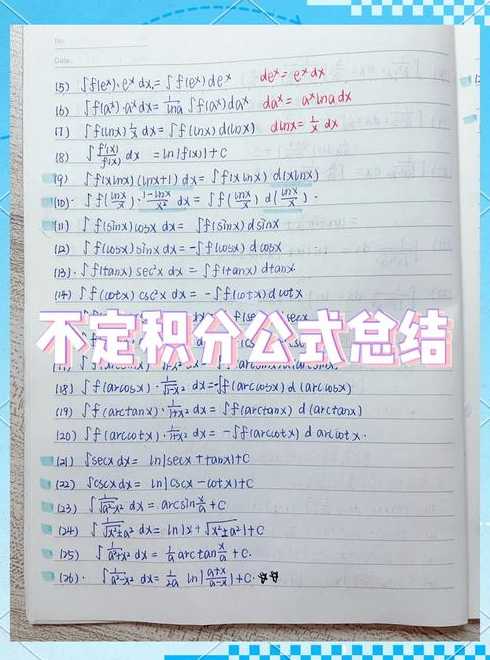 No.
Date.
(5) ∫f(eˣ)·eˣ dx = ∫f(eˣ) deˣ deˣ = eˣ dx
(6) ∫f(aˣ)·aˣ dx = 1/lna ∫f(aˣ) daˣ daˣ = aˣ lna dx
(7) ∫f(lnx) 1/x dx = ∫f(lnx) d(lnx) dlnx = 1/x dx
(8) ∫ f'(x)/f(x) dx = ln|f(x)| + C
(9) ∫f(xlnx)(lnx+1) dx = ∫f(xlnx) d(xlnx)
(10) ∫f(lnx/x)·(1-lnx)/x² dx = ∫f(lnx/x) d(lnx/x).
(11) ∫f(sinx) cosx dx = ∫f(sinx) dsinx
(12) ∫f(cosx) sinx dx = -∫f(cosx) d cosx
(13) ∫f(tanx) sec²x dx = ∫f(tanx) dtanx
(14) ∫f(cotx) csc²x dx = -∫f(cotx) d cotx
不定积分公式总结
(18) ∫f(arccosx)·1/√(1-x²) dx = -∫f(arccosx) d(arccosx)
(19) ∫f(arctanx)·1/(1+x²) dx = ∫f(arctanx) d(arctanx)
(20) ∫f(arccotx)·1/(1+x²) dx = -∫f(arccotx) d arccotx.
(21) ∫secx dx = ln|secx + tanx| + C
(22) ∫cscx dx = ln|cscx - cotx| + C
(23) ∫1/√(a²-x²) dx = arcsin x/a + C
(24) ∫1/√(x²±a²) dx = ln|x + √(x²±a²)| + C
(25) ∫1/(a²+x²) dx = 1/a arctan x/a + C.
(26) ∫1/(a²-x²) dx = 1/2a ln|(a+x)/(a-x)| + C.